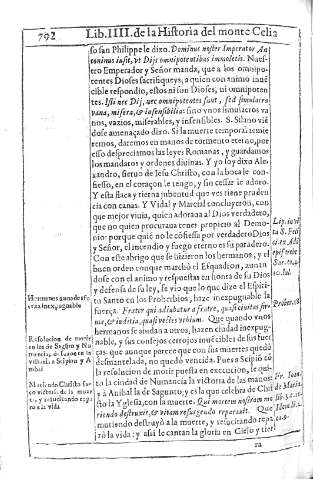 792 Lib. IIII. de la Historia del monte Celia
so san Philippe le dixo. Dominus noster Imperator An
toninus iusit, vt Dijs omnipotentibus immoletis. Nues
tro Emperador y Señor manda, que a los omnipo
tentes Dioses sacrifiqueys, a quien con animo inuē
cible respondio, estos ni son Dioses, ni omnipoten
tes. Isti nec Dij, nec omnipotentes sunt, sed simulacra
vana, misera, & insensibilia: sino vnos simulacros va
nos, vazios, miserables, y insensibles. S. Silano viē
dose amenaçado dixo. Si la muerte temporal temie
remos, daremos en manos de tormento eterno, por
esso despreciamos las leyes Romanas, y guardamos
los mandatos y ordenes diuinas. Y yo soy dixo Ale
xandro, sieruo de Jesu Christo, con la boca le con
fiesso, en el coraçon le tengo, y sin cessar le adoro.
Y esta flaca y tierna jubentud que ves tiene pruden
cia con canas. Y Vidal y Marcial concluyeron, con
que mejor viuia, quien adoraua al Dios verdadero,
que no quien procuraua tener propicio al Demo
nio: porque quié no le cōfiessa por verdadero Dios
y Señor, el incendio y fuego eterno es su paradero.
Con este abrigo que se hizieron los hermanos, y el
buen orden conque marchò el Esquadron, aunan
dose con el animo y respuestas en honra de su Dios
y defensa de su ley, se vio lo que dize el Espiri
tu Santo en los Prouerbios, haze inexpugnable la
fuerça. Frater qui adiubatur a fratre, quasi ciuitas firma,
Que quando vnos
hermanos se ayudan a otros, hazen ciudad inexpug
nable, y sus consejos cerrojos inuécibles de sus fuer
ças: que aunque parece que con sus muertes quedò
desmantelado, no quedò vencido. Pues a Scipiò cō
la resolucion de morir puesta en execucion, le qui
tò la ciudad de Numancia la victoria de las manos:
y à Anibal la de Sagunto: y es la que celebra de Chri
sto la Yglesia, con la muerte. Qui mortem nostram mo
riendo destruxit, & vitam resurgendo reparauit. Que
muriendo destruyò a la muerte, y resucitando repa
rò la vida: y assi le cantan la gloria en Cielo y tier
ra
Hermanos
Resolucion de morir
en los de Sagunto y Nu
mancia,
victoria a Scipion y A
nibal
Muriendo Christo
victoria de la muer
te, y resucitando repa
ra la vida